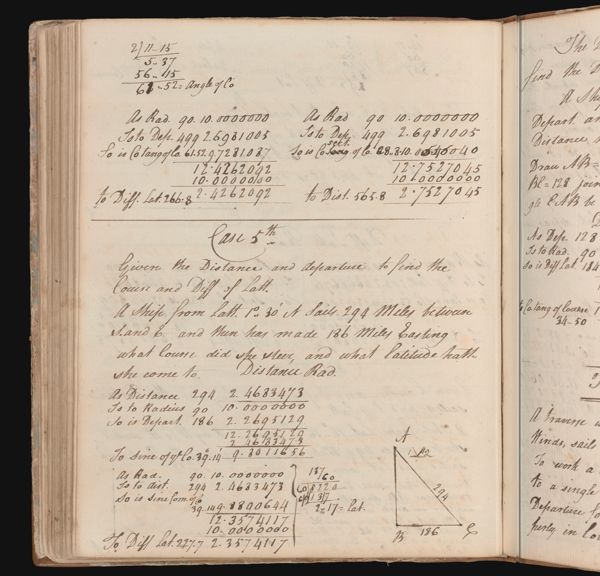 2) 11-15
5-37
56-15
61-52= Angle of Co
As Rad. 90. 10.0000000
Is to Dep. 499 2.6981005
So is Cotang of Co. 61.52 9.7281087
12.4262092
10.0000000
to Diff. Lat. 266.8 2.4262092
As Rad 90 10.0000000
Is to Dep. 499 2.6981005
So is Co sect. of Co.
12.7527045
10.0000000
to Dist. 565.8 2.7527045
Case 5th
Given the Distance and departure to find the
Course and Diff of Latt.
A Ship from Latt. 1° 30' N Sails 294 Miles between
S. and E. and then has made 186 Miles Easting
what Course did she steer, and what Latitude hath
she come to Distance Rad.
As Distance 294 2.4683473
Is to Radius 90 10.0000000
So is Depart. 186 2.2695129
12.2695129
2.4683473
To Sine of ye Co. 39.14 9.8011656
As Rad. 90. 10.0000000
Is to dist. 294 2.4683473
So is Sine Com. of Co
39.14 9.8890644
12.3574117
10.0000000
To Diff Lat. 227.7 2.3574117
2-17= Lat.
A
294
B 186 C
The
find the
A Ship
Depart. an
Distance
Draw AB=
BC=128 join
gle CAB be
As Dep. 128
Is to Rad. 90
So is Diff Lat. 184
to Cotang of Course
34-50
A Traverse
Winds, sails
To work a
to a single
Departure